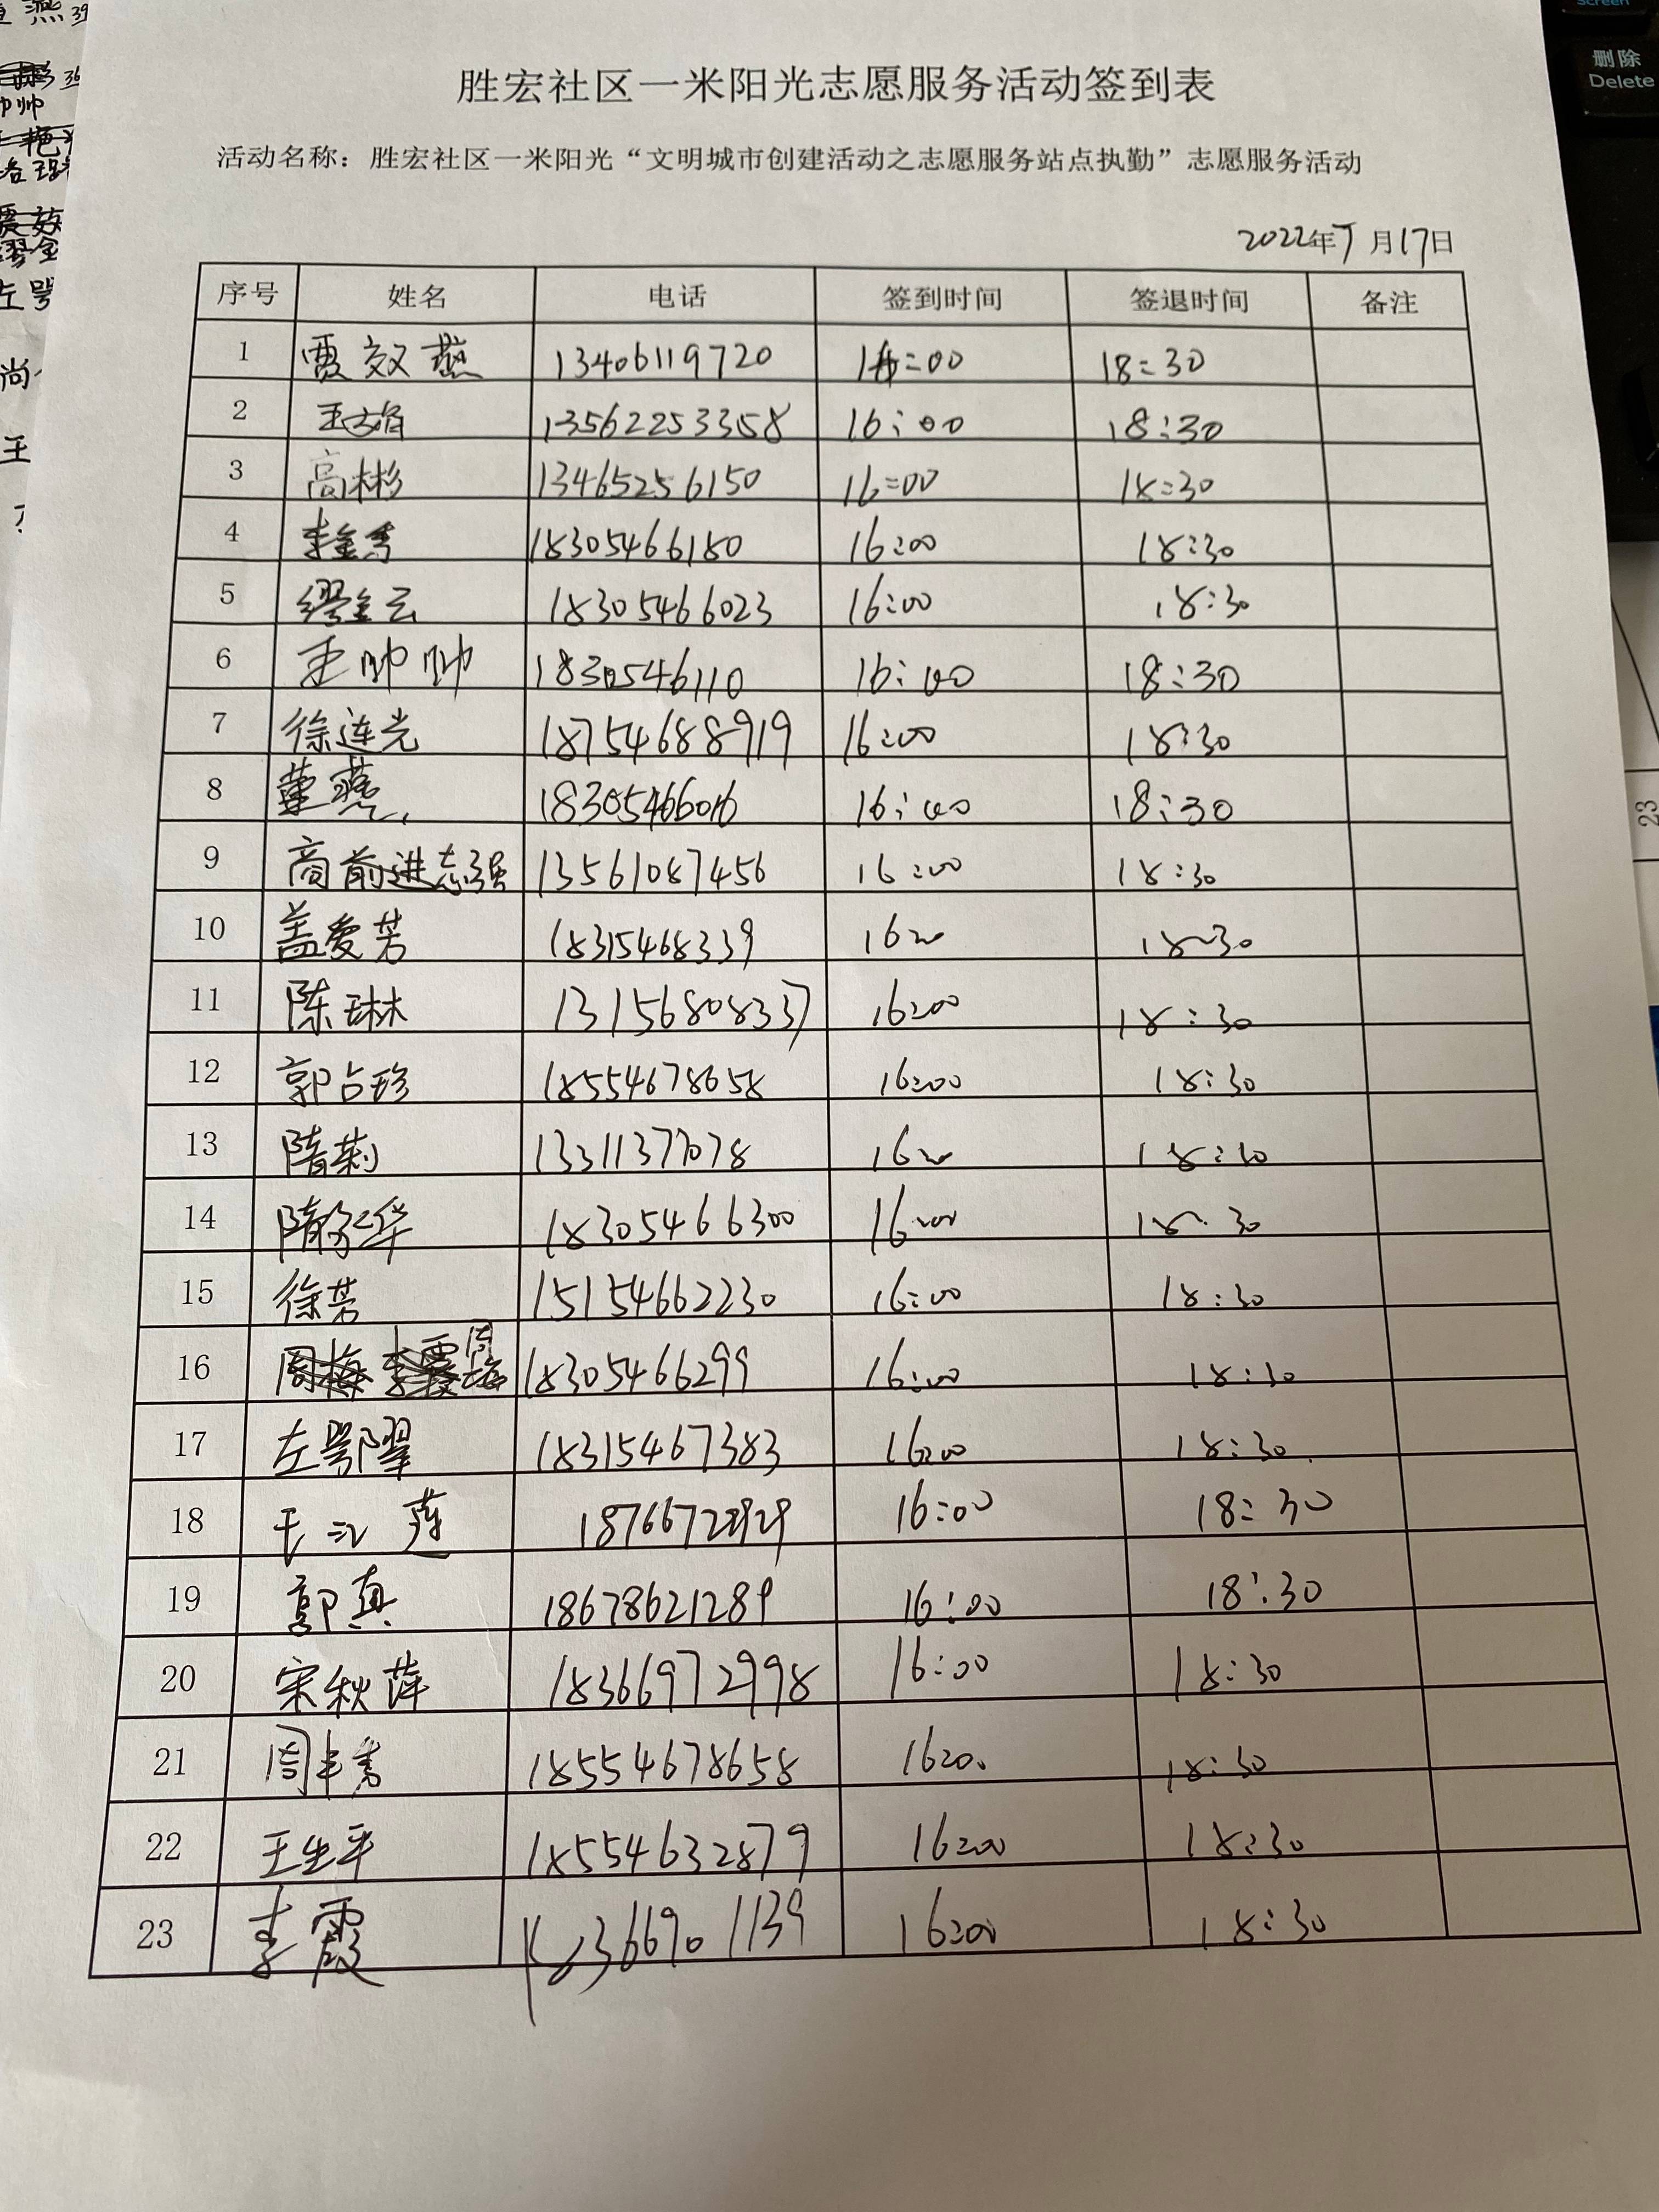 胜宏社区一米阳光志愿服务活动签到表
活动名称：胜宏社区一米阳光“文明城市创建活动之志愿服务站点执勤”志愿服务活动
2022年5月17日
序号 姓名 电话 签到时间 签退时间 备注
1 贾效燕 13406119720 16:00 18:30
2 13562253358 16:00 18:30
3 高彬 13465256150 16:00 18:30
4 李金秀 18305466180 16:00 18:30
5 缪金云 18305466023 16:00 18:30
6 王帅帅 1830546110 16:00 18:30
7 徐连光 18754688919 16:00 18:30
8 董燕 18305466016 16:00 18:30
9 商前进志强 13561087456 16:00 18:30
10 盖爱芳 18315468339 16:00 18:30
11 陈琳 13156808337 16:00 18:30
12 郭占珍 18554678658 16:00 18:30
13 隋莉 13311377078 16:00 18:30
14 18305466300 16:00 18:30
15 徐芳 15154662230 16:00 18:30
16 周梅 18305466299 16:00 18:30
17 左鄂翠 18315467383 16:00 18:30
18 王江莲 16:00 18:30
19 郭真 18678621289 16:00 18:30
20 宋秋萍 18366972998 16:00 18:30
21 周丰秀 18554678658 16:00 18:30
22 王生平 18554632879 16:00 18:30
23 李霞 18366901139 16:00 18:30
删除
Delete
23